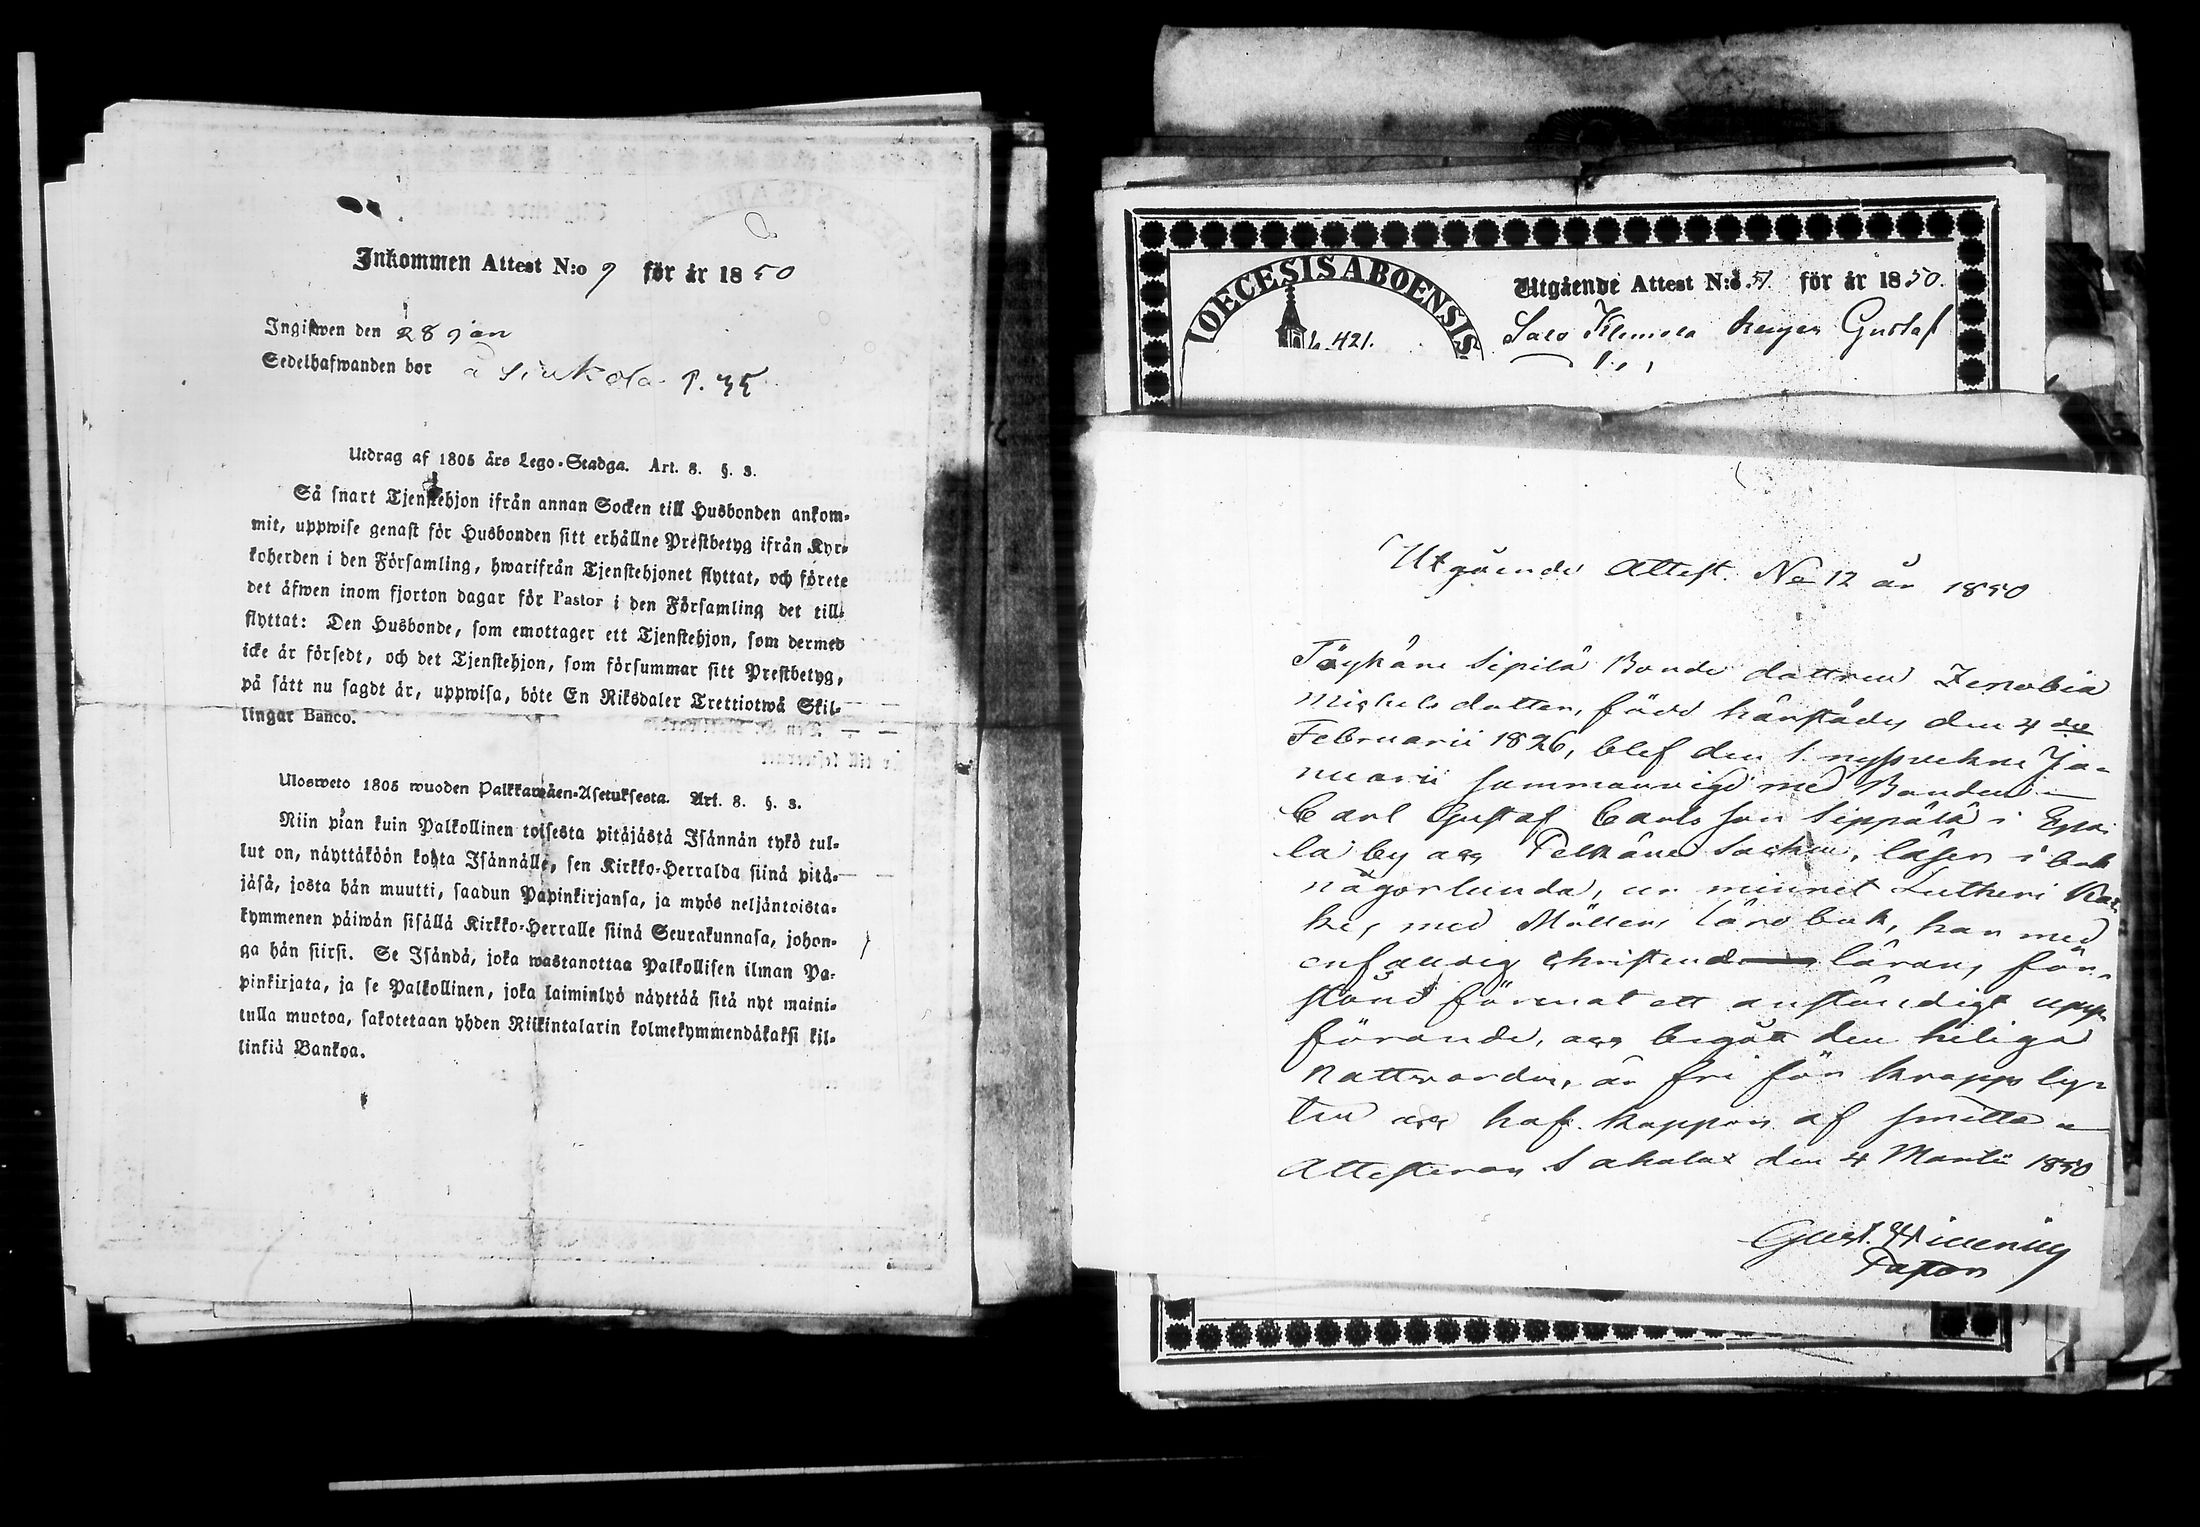 Inkommen Attest N:o 9 för år 1850
Ingifwen den 28 jan
Sedelhafwanden bor å Sinkola p. 35
Utdrag af 1805 års Lego-Stadga. Art. 8. §. 3.
Så snart Tjenstehjon ifrån annan Socken till Husbonden ankom-
mit, uppwise genast för Husbonden sitt erhållne Prestbetyg ifrån Kyr-
koherden i den Församling, hwarifrån Tjenstehjonet flyttat, och förete
det äfwen inom fjorton dagar för Pastor i den Församling det till-
flyttat: Den Husbonde, som emottager ett Tjenstehjon, som dermed
icke är försedt, och det Tjenstehjon, som försummar sitt Prestbetyg,
på sätt nu sagdt är, uppwisa, böte En Riksdaler Trettiotwå Skil-
lingar Banco.
Ulosweto 1805 wuoden Palkkawäen-Asetuksesta. Art. 8. §. 3.
Niin pian kuin Palkollinen toisesta pitäjästä Isännän tykö tul-
lut on, näyttäköön kohta Isännälle, sen Kirkko-Herralda siinä pitä-
jäsä, josta hän muutti, saadun Papinkirjansa, ja myös neljäntoista-
kymmenen päiwän sisällä Kirkko-Herralle siinä Seurakunnasa, johon-
ga hän siirsi. Se Isändä, joka wastanottaa Palkollisen ilman Pa-
pinkirjata, ja se Palkollinen, joka laiminlyö näyttää sitä nyt maini-
tulla muotoa, sakotetaan yhden Riikintalarin kolmekymmendäkaksi kil-
linkiä Bankoa.
DIOECESIS ABOENSIS
Utgående Attest N:o 51 för år 1850.
421.
Salo Klemola Gustaf
Utgående Attest. No 12 år 1850
Töykäne Sipilä Bonde dottren Zenobia
Michelsdotter, född härstädes den 4de
Februarii 1826, blef den 1. nyssvekne Ja-
nuarii sammanvigd med Bonden
Carl Gustaf Carlsson Sippälä i Eppi-
la by och Pelkäne Socken, läser i bok
någorlunda, ur minnet Lutheri Kat.
kes med Möllers lärobok, har med
enfaldig christendoms lärans för-
stånd förenat ett anständigt upp-
förande, och begått den heliga
Nattvarden, är fri för kropps ly-
ten och haft koppor af smitta
Attesteras Sahalax den 4 Martii 1850.
Gust.
Pastor